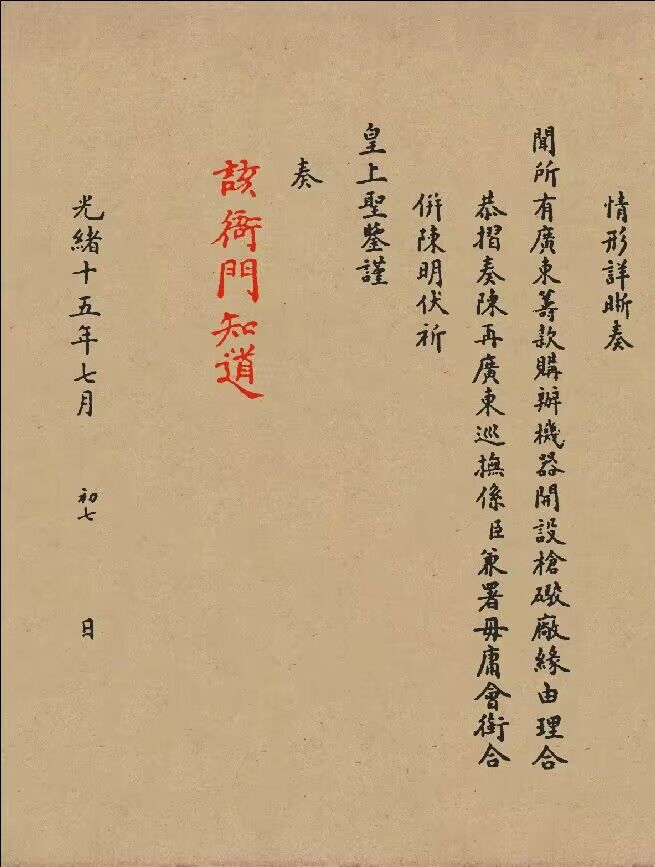 情形詳晰奏
聞所有廣東籌款購辦機器開設槍礮廠緣由理合
恭摺奏陳再廣東巡撫係臣兼署毋庸會銜合
併陳明伏祈
皇上聖鑒謹
奏
該衙門知道
光緒十五年七月初七日